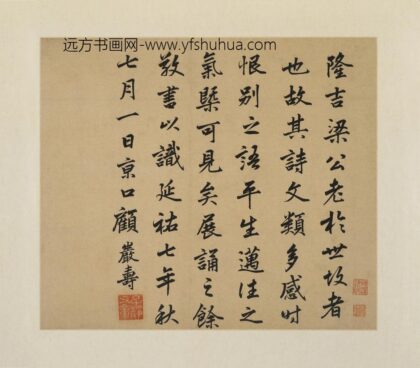 远方书画网--www.yfshuhua.com
隆吉梁公老於世故者
也故其詩文類多感时
恨别之語平生邁往之
氣槩可見矣展誦之餘
敬書以識延祐七年秋
七月一日京口顧巖壽